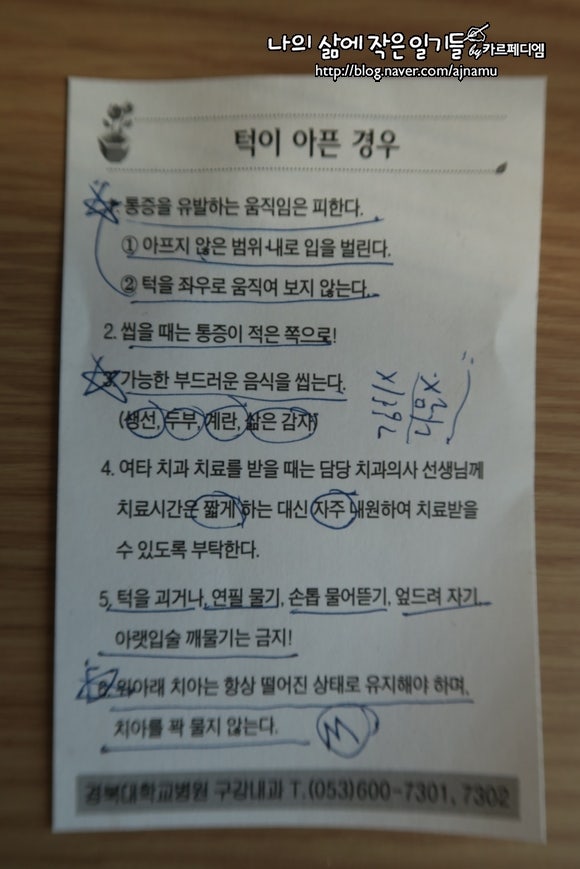 나의 삶에 작은 일기들 by 카르페디엠
http://blog.naver.com/ajnamu
턱이 아픈 경우
1. 통증을 유발하는 움직임은 피한다.
① 아프지 않은 범위 내로 입을 벌린다.
② 턱을 좌우로 움직여 보지 않는다.
2. 씹을 때는 통증이 적은 쪽으로!
3. 가능한 부드러운 음식을 씹는다.
(생선, 두부, 계란, 삶은 감자)
4. 여타 치과 치료를 받을 때는 담당 치과의사 선생님께
치료시간은 짧게 하는 대신 자주 내원하여 치료받을
수 있도록 부탁한다.
5. 턱을 괴거나, 연필 물기, 손톱 물어뜯기, 엎드려 자기,
아랫입술 깨물기는 금지!
6. 위아래 치아는 항상 떨어진 상태로 유지해야 하며,
치아를 꽉 물지 않는다.
경북대학교병원 구강내과 T.(053)600-7301, 7302